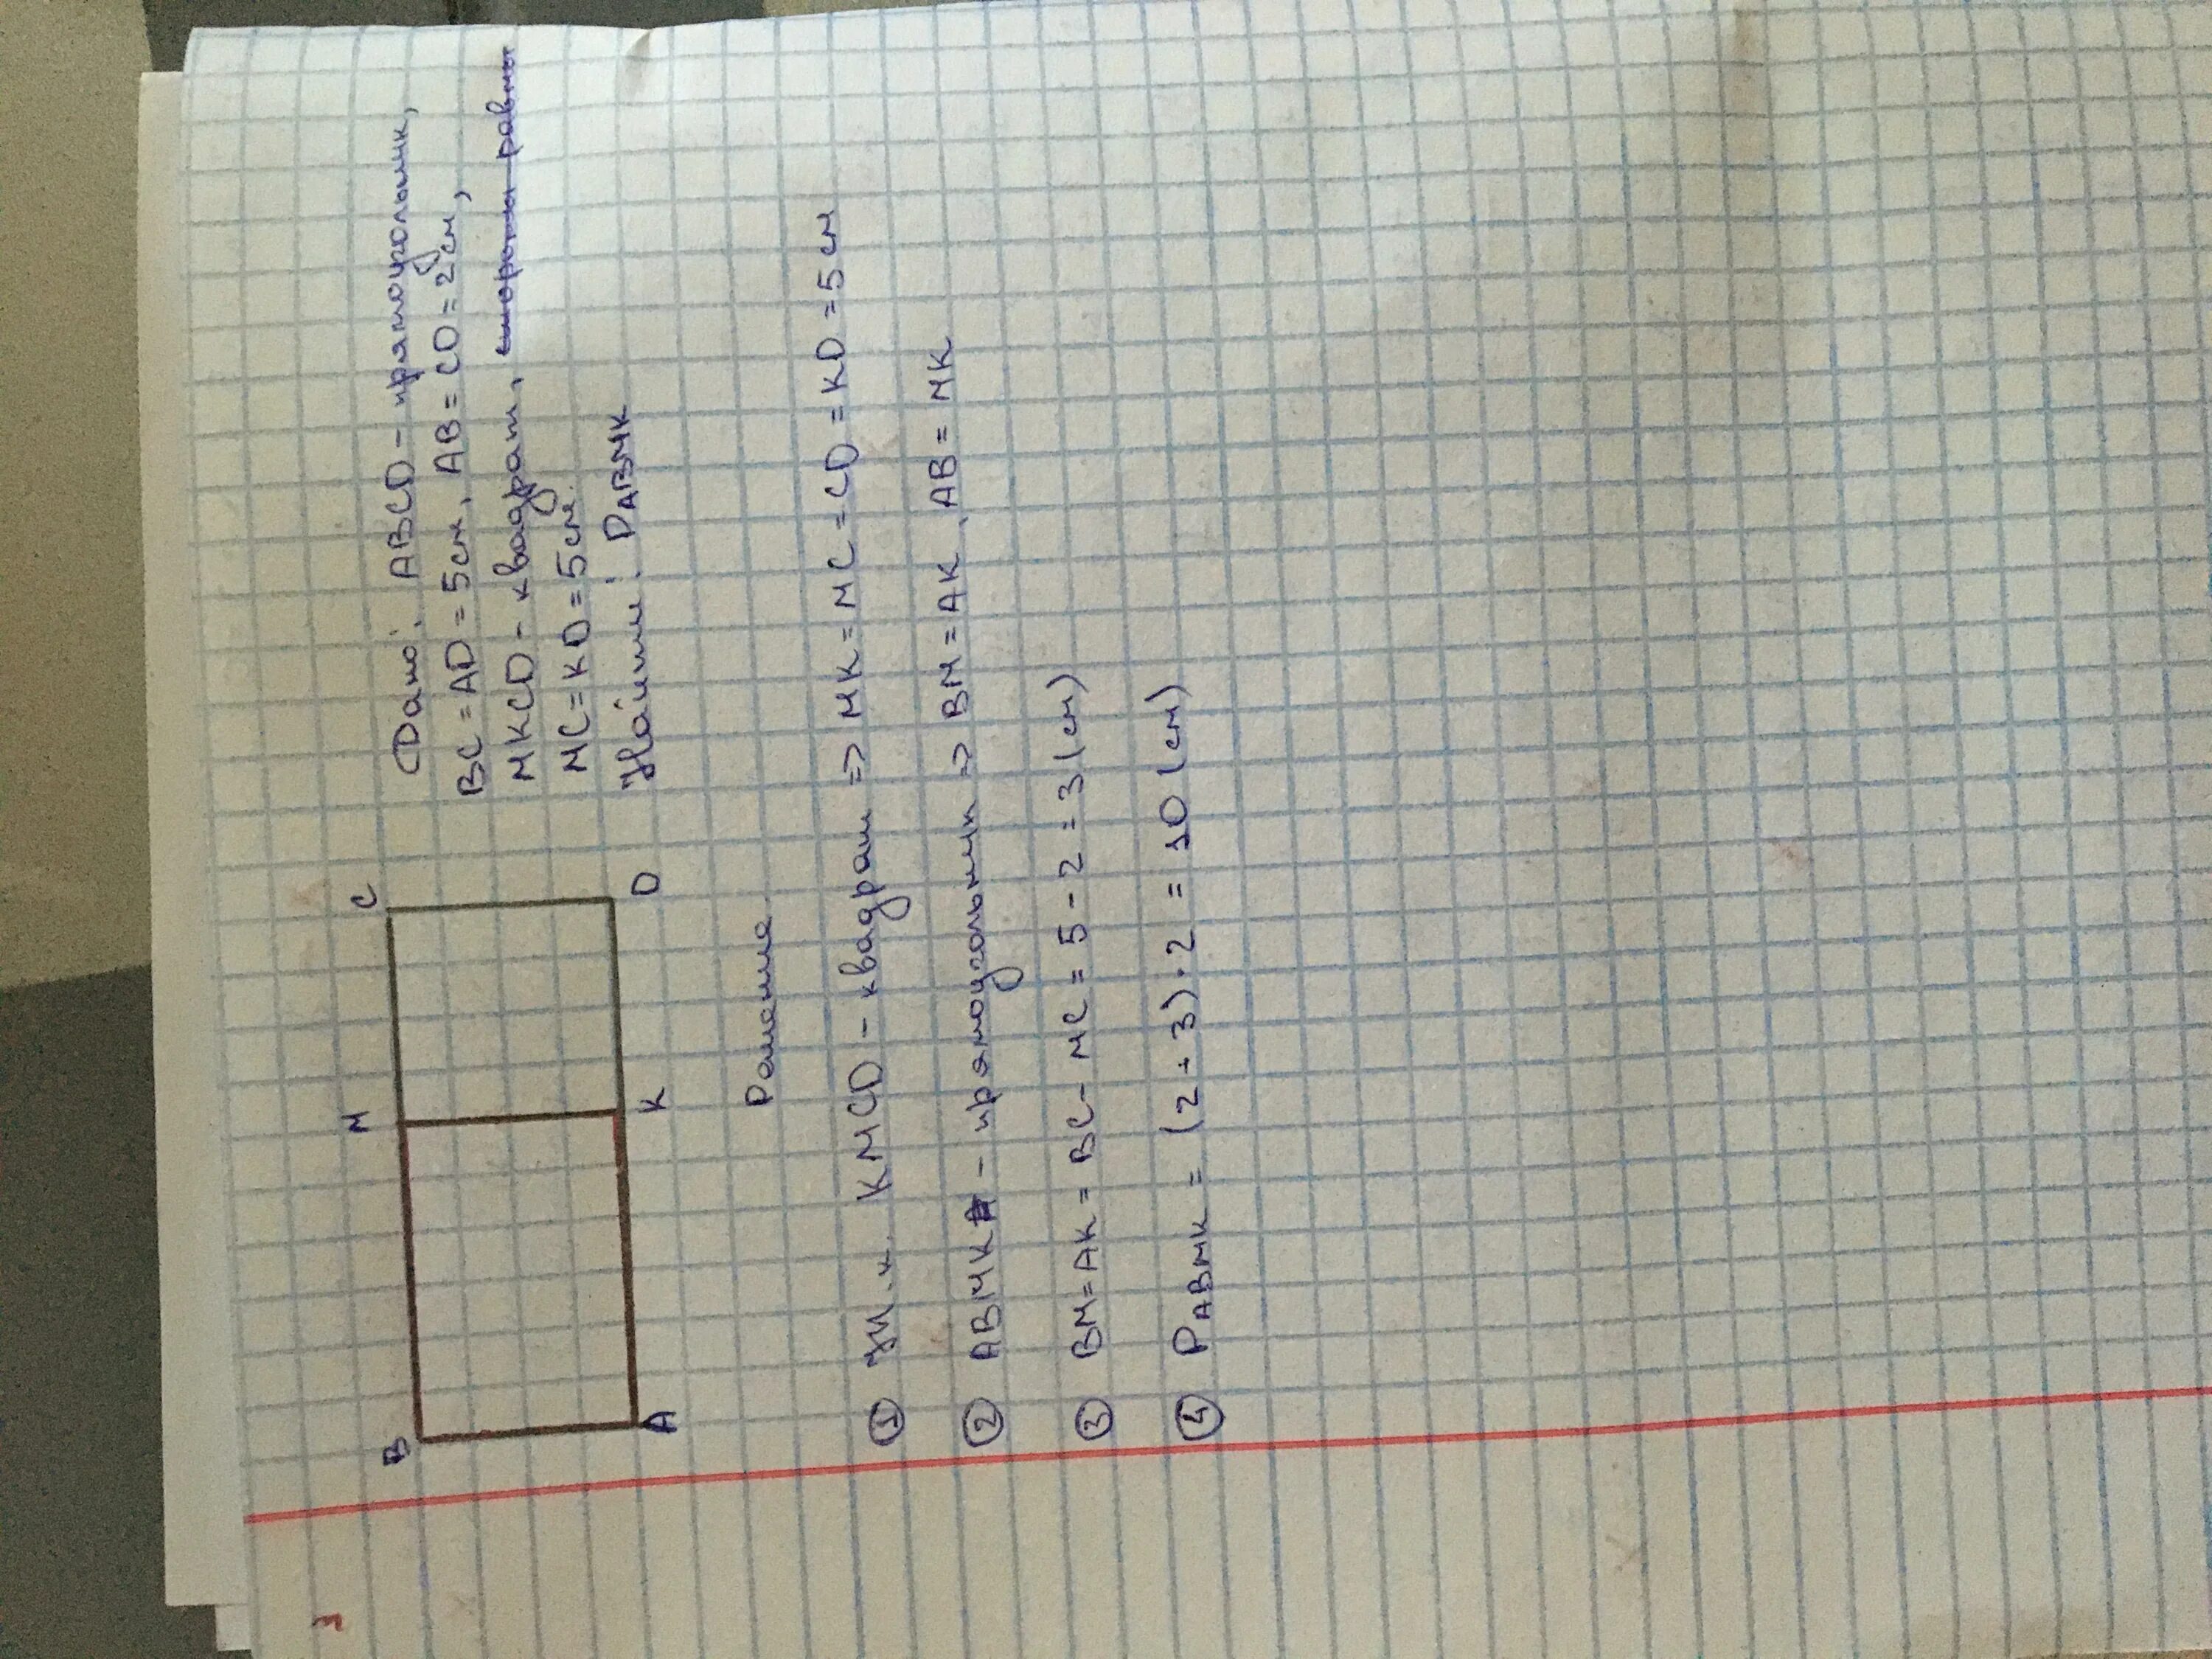 B M C
A K D
Дано: ABCD - прямоугольник,
BC = AD = 5см, AB = CD = 2см,
MKCD - квадрат, стороны равны
MC = KD = 5см.
Найти: PABMK
Решение
① Т.к. KMCD - квадрат => MK = MC = CD = KD = 5 см
② ABMK - прямоугольник => BM = AK, AB = MK
③ BM = AK = BC - MC = 5 - 2 = 3 (см)
④ PABMK = (2 + 3) · 2 = 10 (см)